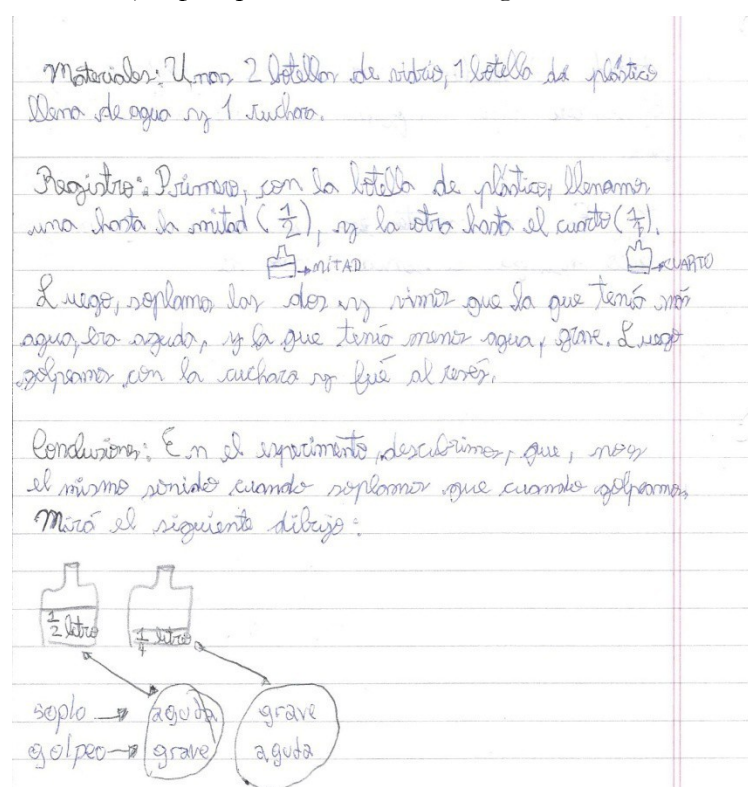 Materiales: Unas 2 botellas de vidrio, 1 botella de plástico
llena de agua y 1 cuchara.
Registro: Primero, con la botella de plástico, llenamos
una hasta la mitad (1/2), y la otra hasta el cuarto (1/4).
MITAD CUARTO
Luego, soplamos las dos y vimos que la que tenía más
agua, era aguda, y la que tenía menos agua, grave. Luego
golpeamos con la cuchara y fué al revés.
Conclusiones: En el experimento, descubrimos, que, no es
el mismo sonido cuando soplamos que cuando golpeamos.
Mirá el siguiente dibujo:
1/2 litro 1/4 litro
soplo → aguda grave
golpeo → grave aguda